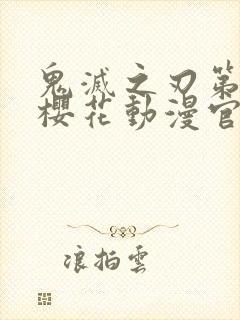 鬼滅之刃第
櫻花動漫官
浪拍雲